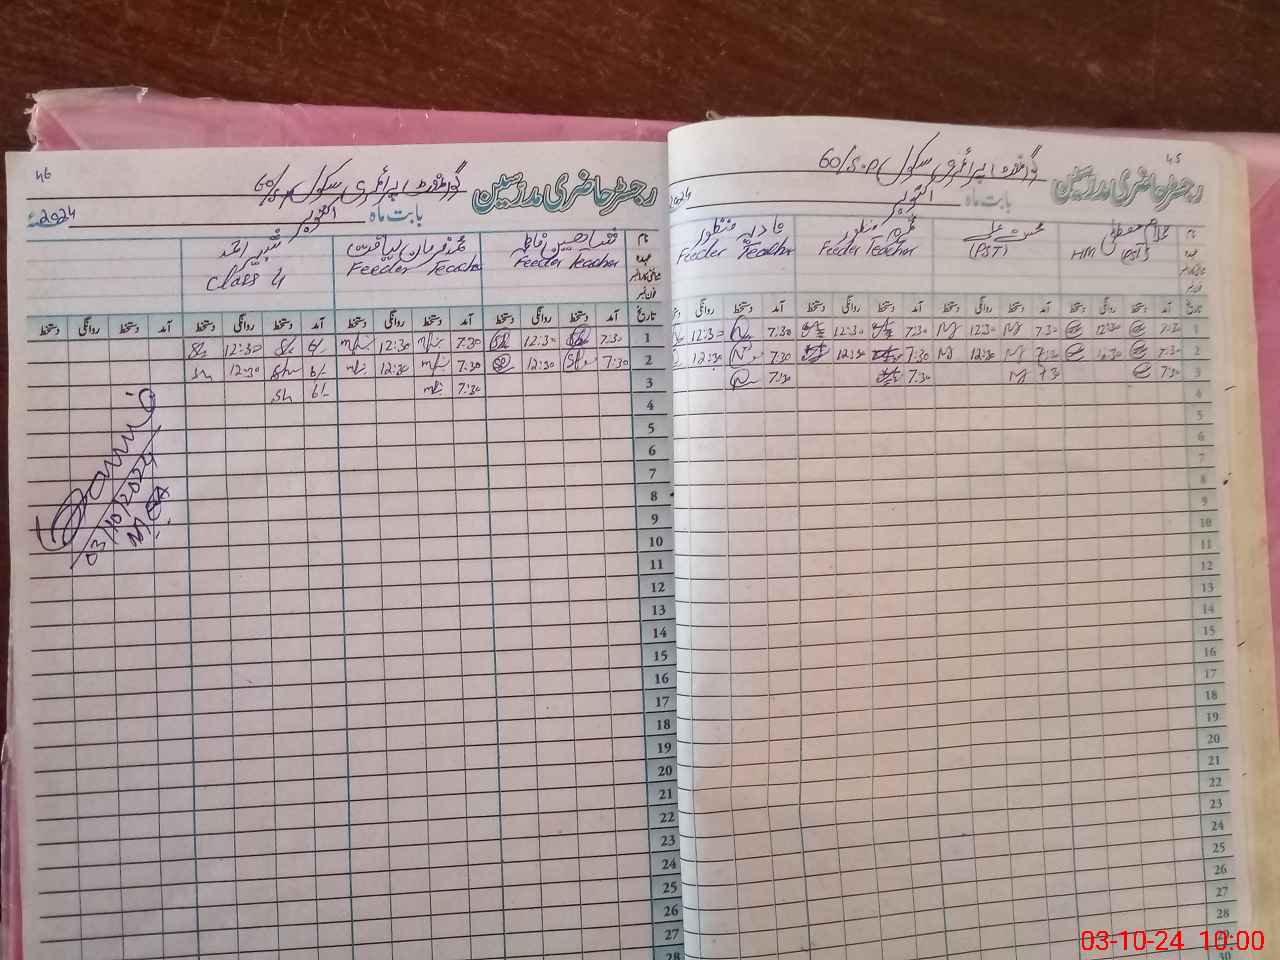 45
گورنمنٹ پرائمری سکول 60/S.P
رجسٹر حاضری مدرسین
بابت ماہ اکتوبر 2024
نام
غلام مصطفیٰ
HM (PST)
(PST)
Feeder Teacher
نادیہ منظور
Feeder Teacher
تاریخ آمد دستخط روانگی دستخط آمد دستخط روانگی دستخط آمد دستخط روانگی دستخط آمد دستخط روانگی
1 7.30 12.30 7.30 12.30 7.30 12.30 7.30 12:30
2 7.30 12.30 7.30 12.30 7.30 12.30 7.30 12:30
3 7.30 7.30 7.30 7.30
4
5
6
7
8
9
10
11
12
13
14
15
16
17
18
19
20
21
22
23
24
25
26
27
28
29
30
46
گورنمنٹ پرائمری سکول 60/S.P
رجسٹر حاضری مدرسین
بابت ماہ اکتوبر 2024
نام
Feeder Teacher
Feeder Teacher
شبیر احمد
Class 4
تاریخ آمد دستخط روانگی دستخط آمد دستخط روانگی دستخط آمد دستخط روانگی دستخط آمد دستخط روانگی دستخط
1 7.30 12:30 7.30 12:30 12:30
2 7.30 12:30 7.30 12:30 12:30
3 7.30
4
5
6
7
8
9
10
11
12
13
14
15
16
17
18
19
20
21
22
23
24
25
26
27
28
03/10/2024
03-10-24 10:00